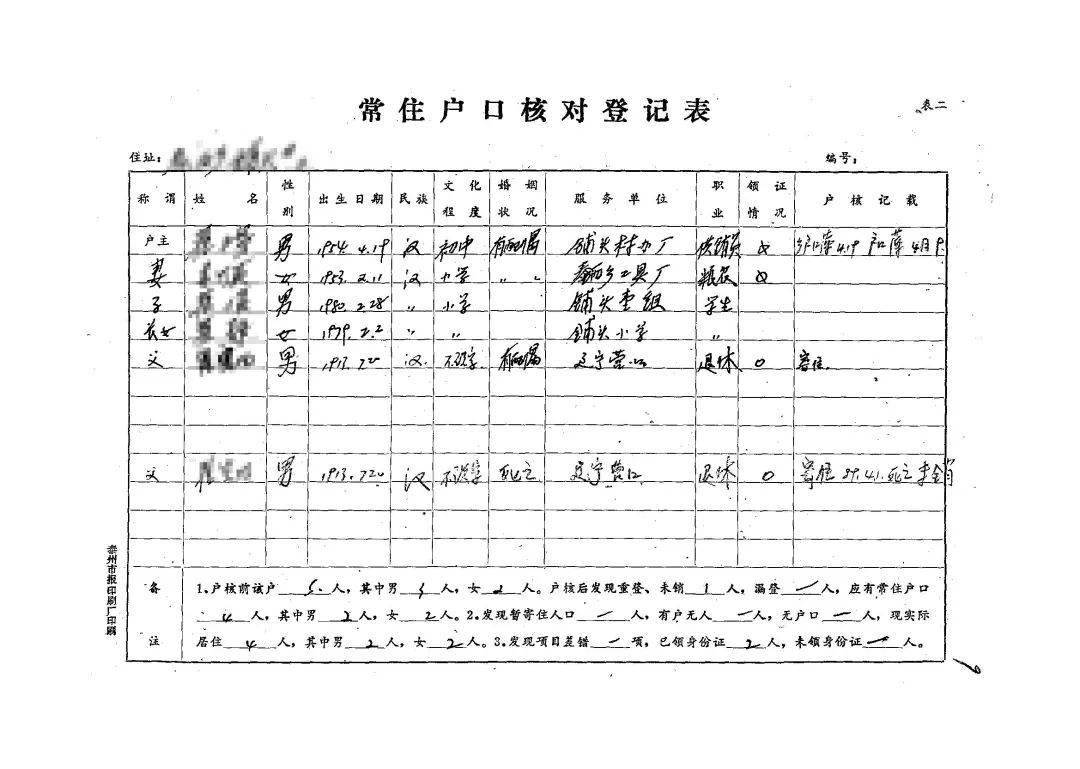 常住户口核对登记表
表二
住址：
编号：
称谓 姓名 性别 出生日期 民族 文化程度 婚姻状况 服务单位 职业 领证情况 户核记载
户主 男 1954.4.19 汉 初中 有配偶 铺头村办厂 供销员
妻 女 1953.2.11 汉 小学 〃 〃 乡工具厂
子 男 1980.2.28 〃 小学 铺头 学生
长女 女 1979.2.2 〃 〃 铺头小学 〃
父 男 1913.7.20 汉 不识字 有配偶 辽宁营口 退休 0 寄住
父 男 1913.7.20 汉 不识字 死亡 辽宁营口 退休 0 寄住 死亡未
备注
1.户核前该户5人，其中男3人，女2人。户核后发现重登、未销1人，漏登一人，应有常住户口
4人，其中男2人，女2人。2.发现暂寄住人口一人，有户无人一人，无户口一人，现实际
居住4人，其中男2人，女2人。3.发现项目差错一项，已领身份证2人，未领身份证一人。
泰州市报印刷厂印刷